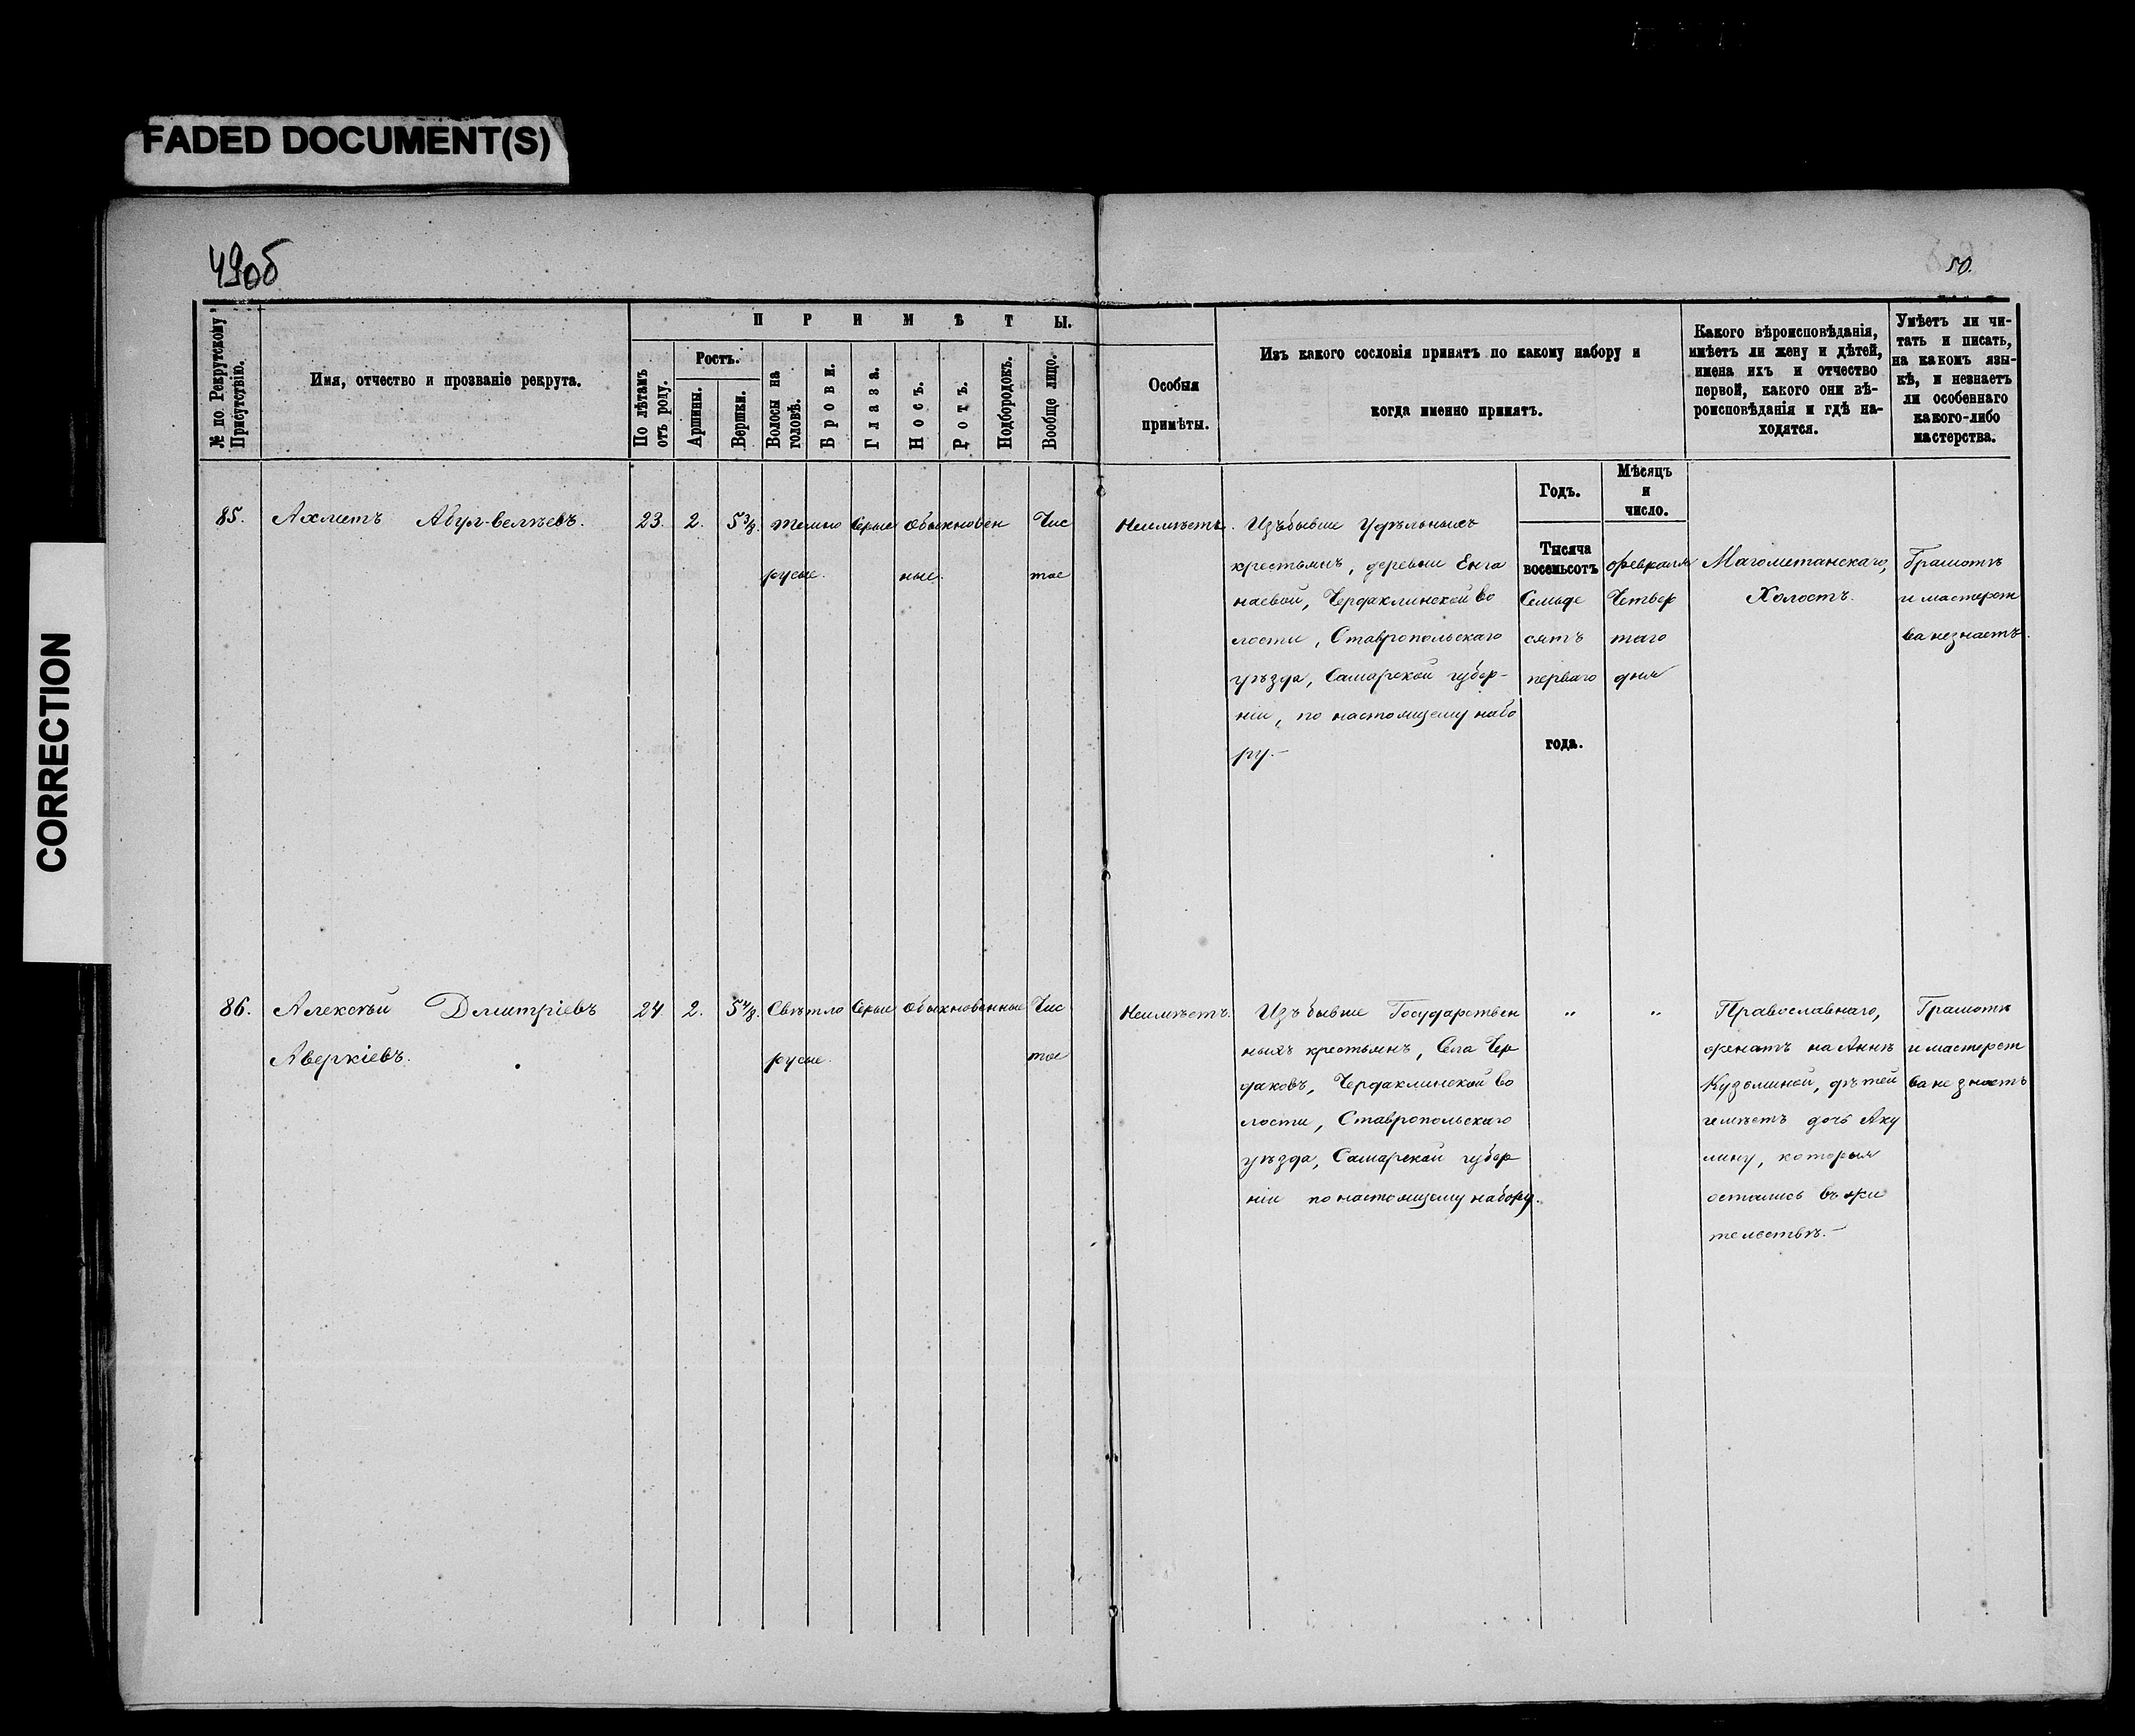 FADED DOCUMENT(S)
CORRECTION
49об
50.
№ по Рекрутскому
Присутствію.
Имя, отчество и прозваніе рекрута.
ПРИМѢТЫ.
По лѣтамъ
отъ роду.
Ростъ.
Аршины.
Вершки.
Волосы на
головѣ.
Брови.
Глаза.
Носъ.
Ротъ.
Подбородокъ.
Вообще лицо.
Особыя
примѣты.
Изъ какого сословія принятъ по какому набору и
когда именно принятъ.
Какого вѣроисповѣданія,
имѣетъ ли жену и дѣтей,
имена ихъ и отчество
первой, какого они вѣ-
роисповѣданія и гдѣ на-
ходятся.
Умѣетъ ли чи-
тать и писать,
на какомъ язы-
кѣ, и незнаетъ
ли особеннаго
какого-либо
мастерства.
Годъ.
Мѣсяцъ
и
число.
85. Ахметъ Абул-велѣевъ. 23. 2. 5 3/8. темно Серые Обыкновен Чис
русые. ные. тое
Неимѣетъ.
Изъ бывше Удѣльныхъ
крестьянъ, деревни Енга
наевой, Чердаклинской во
лости, Ставропольскаго
уѣзда, Самарской губер-
ніи, по настоящему набо
ру.-
Тысяча
восемьсотъ
Семьде
сятъ
перваго
года.
февраля
Четвер
таго
дня
Магометанскаго,
Холостъ.
Грамотѣ
и мастерст
ва незнаетъ.
86. Алексѣй Дмитріевъ 24 2. 5 4/8. Свѣтло Серые Обыкновенные Чис
Аверкіевъ. русые. тое
Неимѣетъ.
Изъ бывше Государствен
ныхъ крестьянъ, Села Чер
даковъ, Чердаклинской во
лости, Ставропольскаго
уѣзда, Самарской губер
ніи по настоящему набору.
" "
Православнаго,
женатъ на Аннѣ
Кузьминой, дѣтей
имѣетъ дочь Аку
лину, которыя
остались въ жи
тельствѣ.-
Грамотѣ
и мастерст
ва не знаетъ